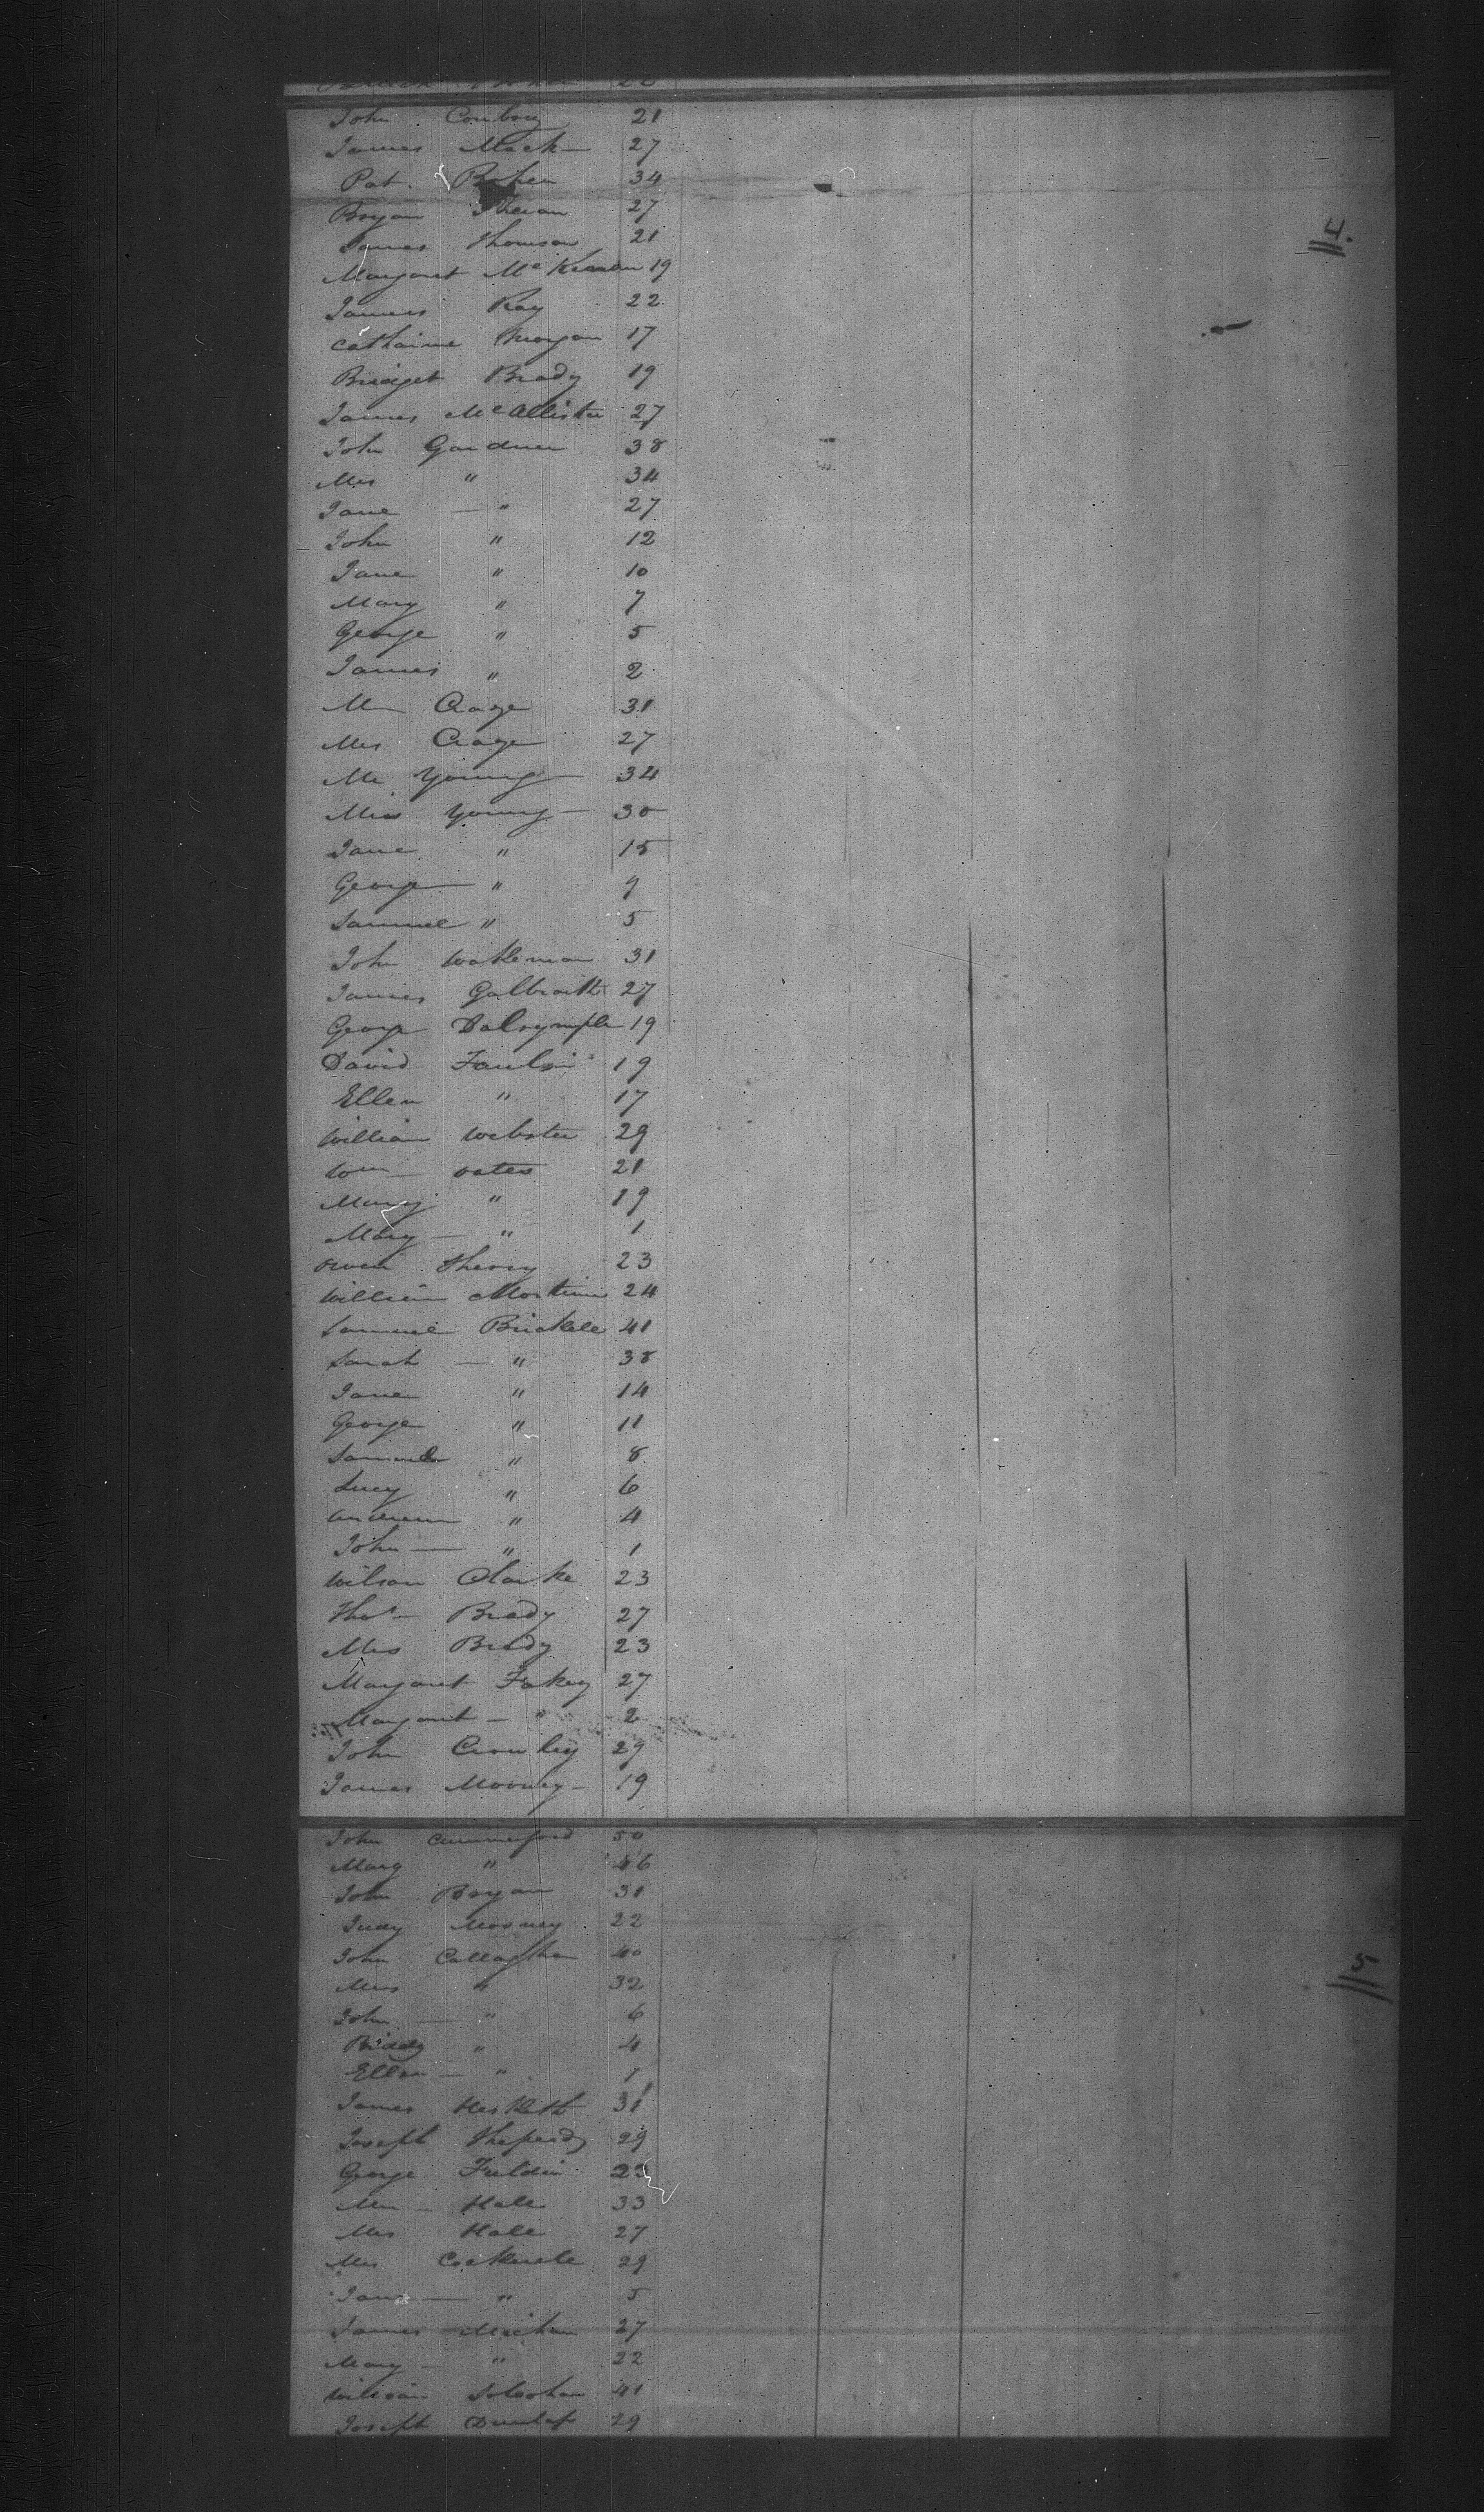 22
John Conboy 21
James Mack 27
Pat. 34
Bryan 27
James Thomson 21
Margaret McKiernan 19
James Ray 22
Catharine Morgan 17
Bridget Brady 19
James McAllister 27
John Gardner 38
Mrs " 34
Jane — " 27
John " 12
Jane " 10
Mary " 7
George " 5
James " 2
Mr Crage 31
Mrs Crage 27
Mr Young 34
Mrs Young — 30
Jane " 15
George — " 9
Samuel " 5
John Wakeman 31
James Galbraith 27
George Dalrymple 19
David 19
Ellen " 17
William Webster 29
Wm — oates 21
Mary " 19
Mary — " 1
Owen Sherry 23
William Mortimer 24
Samuel Brickell 41
Sarah — " 38
Jane " 14
George " 11
Samuel " 8
Lucy " 6
Andrew " 4
John — " 1
Wilson Clarke 23
Thos — Brady 27
Mrs Brady 23
Margaret Fahey 27
Margaret — " 2
John Crowley 29
James Mooney — 19
4.
John Cummerford 50
Mary " 46
John Bryan 31
Judy Mooney 22
John Callaghan 40
Mrs " 32
John — " 6
Biddy " 4
Ellen — " 1
James Hesketh 31
Joseph Shepard 29
George Fieldin 23
Mr — Hale 33
Mrs Hale 27
Mrs Cockerele 29
Jane — " 5
James Meehan 27
Mary — " 22
William 41
Joseph Dunlap 29
5